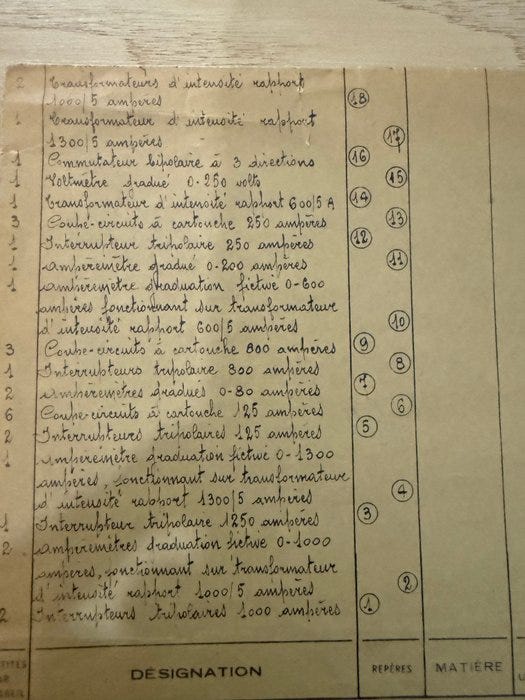 2 Transformateurs d'intensité rapport
1000/5 ampères 18
1 Transformateur d'intensité rapport
1300/5 ampères 17
1 Commutateur bipolaire à 3 directions 16
1 Voltmètre gradué 0-250 volts 15
1 Transformateur d'intensité rapport 600/5 A 14
3 Coupe-circuits à cartouche 250 ampères 13
1 Interrupteur tripolaire 250 ampères 12
1 Ampèremètre gradué 0-200 ampères 11
1 Ampèremètre graduation fictive 0-600
ampères fonctionnant sur transformateur
d'intensité rapport 600/5 ampères 10
3 Coupe-circuits à cartouche 800 ampères 9
1 Interrupteurs tripolaire 800 ampères 8
2 Ampèremètres gradués 0-80 ampères 7
6 Coupe-circuits à cartouche 125 ampères 6
2 Interrupteurs tripolaires 125 ampères 5
1 Ampèremètre graduation fictive 0-1300
ampères, fonctionnant sur transformateur
d'intensité rapport 1300/5 ampères 4
1 Interrupteur tripolaire 1250 ampères 3
2 Ampèremètres graduation fictive 0-1000
ampères, fonctionnant sur transformateur
d'intensité rapport 1000/5 ampères 2
2 Interrupteurs tripolaires 1000 ampères 1
DÉSIGNATION REPÈRES MATIÈRE